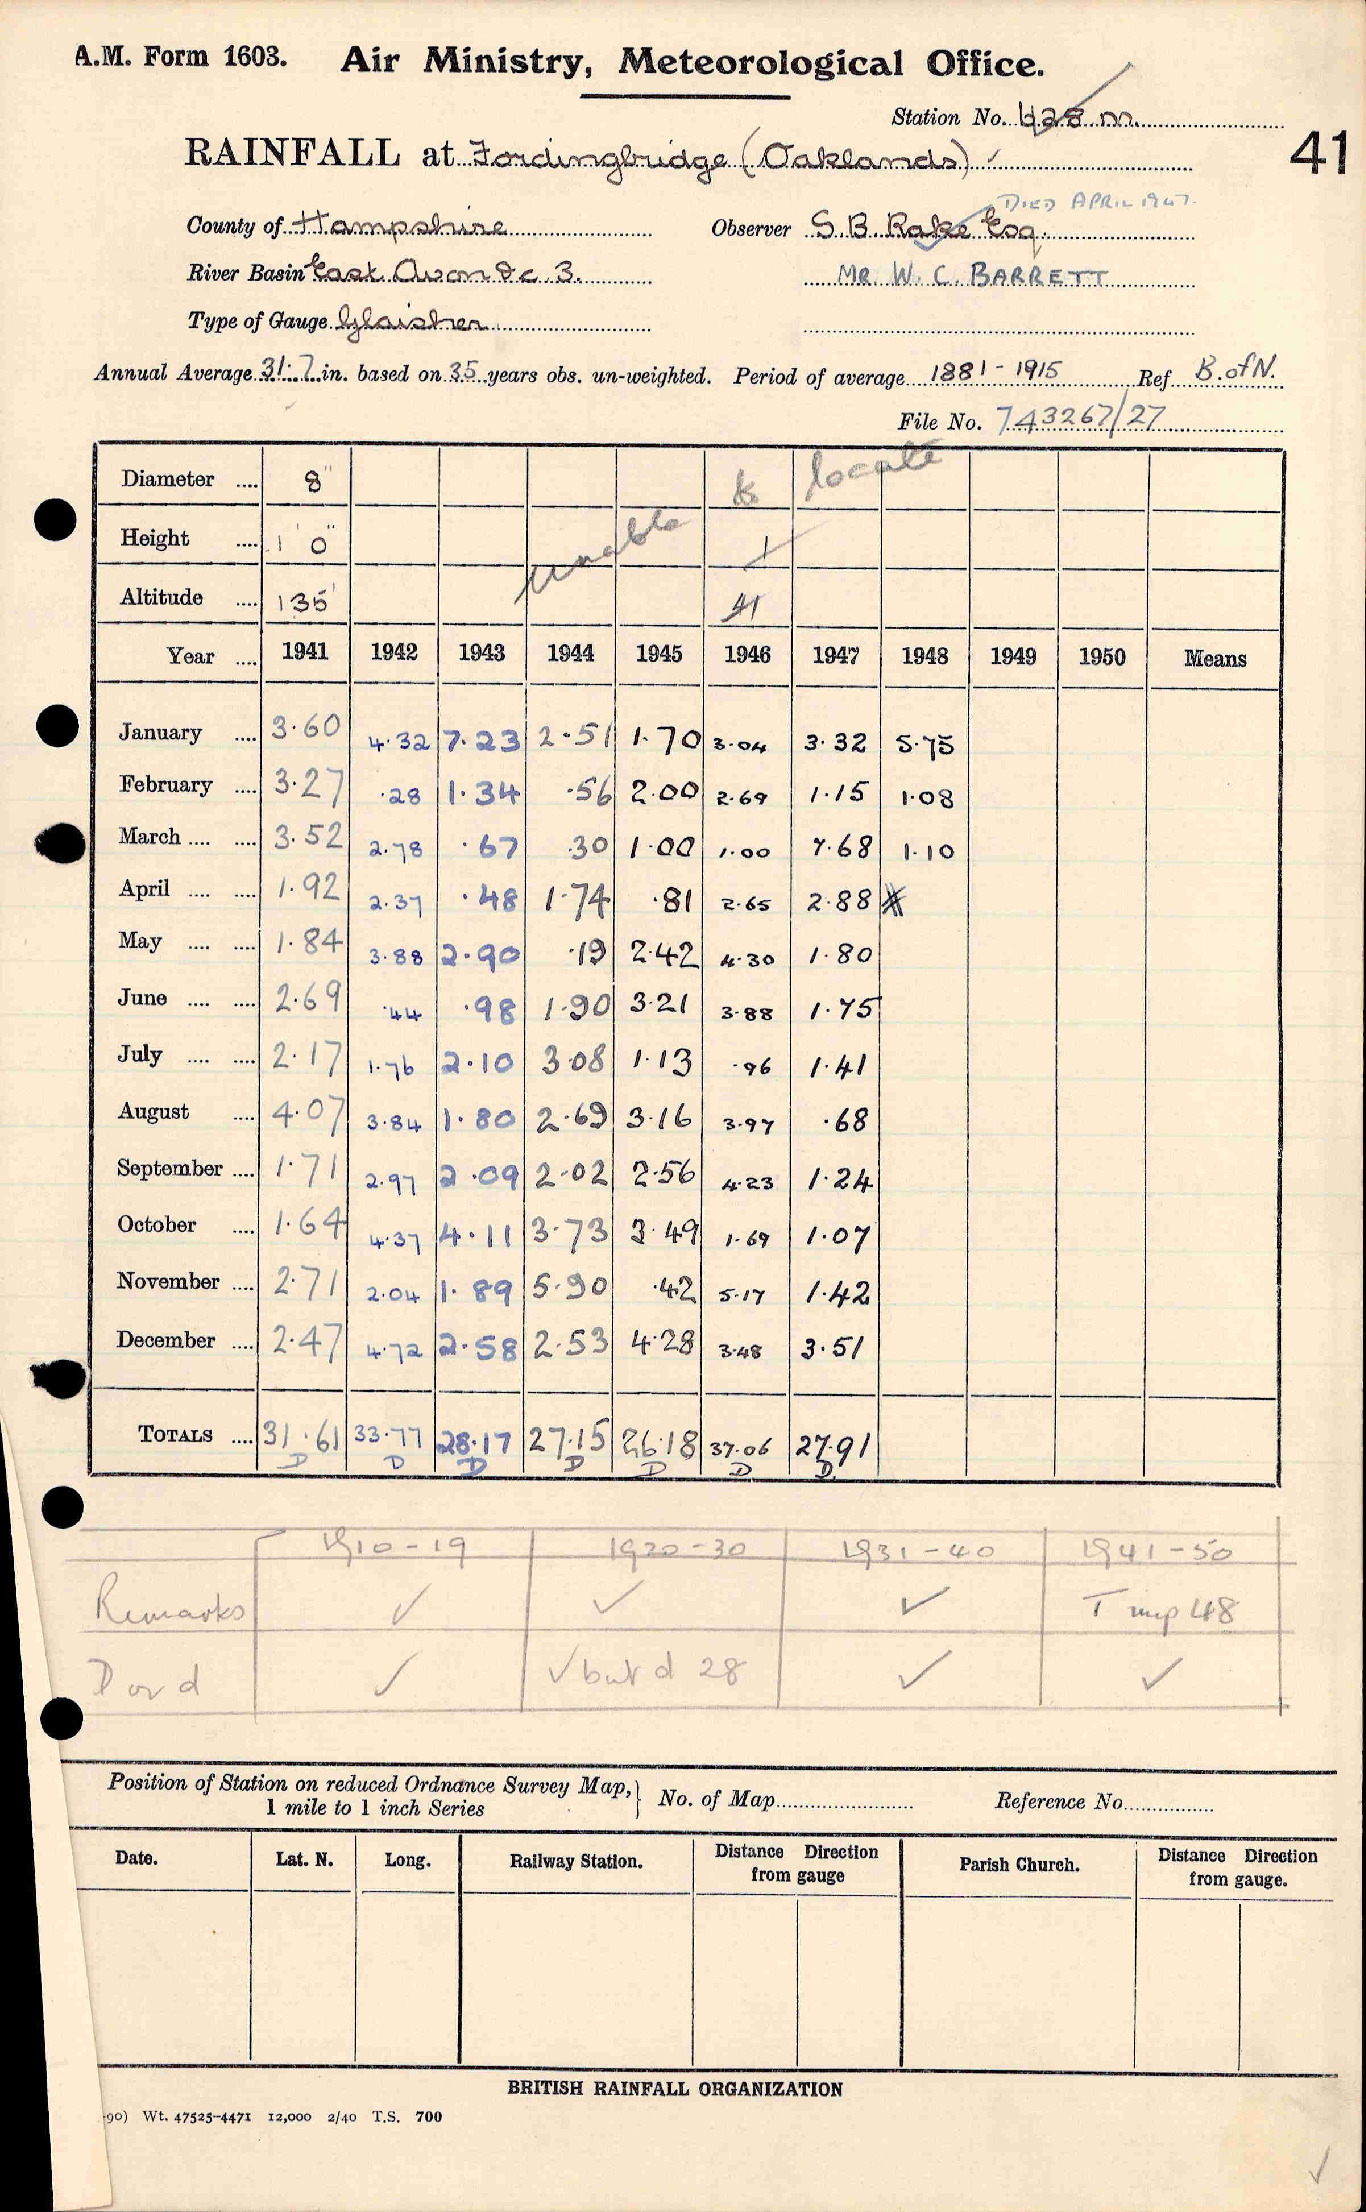 A.M. Form 1603. Air Ministry, Meteorological Office.
Station No. 428 m.
41
RAINFALL at Fordingbridge (Oaklands)
DIED APRIL 1947.
County of Hampshire Observer S. B. Rake Esq.
River Basin East Avon &c 3. MR W. C. BARRETT
Type of Gauge Glaisher
Annual Average 31.7 in. based on 35 years obs. un-weighted. Period of average 1881 - 1915 Ref B. of N.
File No. 743267/27
unable to locate
Diameter .... 8"
Height .... 1' 0" 1
Altitude .... 135' 41
Year .... 1941 1942 1943 1944 1945 1946 1947 1948 1949 1950 Means
January .... 3.60 4.32 7.23 2.51 1.70 3.04 3.32 5.75
February .... 3.27 .28 1.34 .56 2.00 2.69 1.15 1.08
March .... .... 3.52 2.78 .67 .30 1.00 1.00 7.68 1.10
April .... .... 1.92 2.37 .48 1.74 .81 2.65 2.88
May .... .... 1.84 3.88 2.90 .19 2.42 4.30 1.80
June .... .... 2.69 .44 .98 1.90 3.21 3.88 1.75
July .... .... 2.17 1.76 2.10 3.08 1.13 .96 1.41
August .... 4.07 3.84 1.80 2.69 3.16 3.97 .68
September .... 1.71 2.97 2.09 2.02 2.56 4.23 1.24
October .... 1.64 4.37 4.11 3.73 3.49 1.69 1.07
November .... 2.71 2.04 1.89 5.90 .42 5.17 1.42
December .... 2.47 4.72 2.58 2.53 4.28 3.48 3.51
TOTALS .... 31.61 33.77 28.17 27.15 26.18 37.06 27.91
D D D D D D D
1910-19 1920-30 1931-40 1941-50
Remarks ✓ ✓ ✓ T 48
D or d ✓ ✓ but d 28 ✓ ✓
Position of Station on reduced Ordnance Survey Map, 1 mile to 1 inch Series } No. of Map Reference No.
Date. Lat. N. Long. Railway Station. Distance Direction from gauge Parish Church. Distance Direction from gauge.
BRITISH RAINFALL ORGANIZATION
90) Wt. 47525-4471 12,000 2/40 T.S. 700